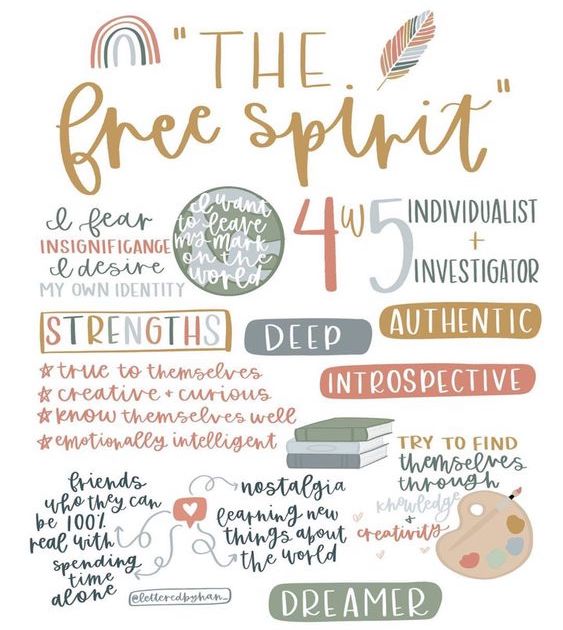 "THE
free spirit"
I fear
INSIGNIFICANCE
I desire
MY OWN IDENTITY
I want
to leave
my mark
on the
world
4w5
INDIVIDUALIST
+
INVESTIGATOR
STRENGTHS
DEEP
AUTHENTIC
INTROSPECTIVE
true to themselves
creative + curious
know themselves well
emotionally intelligent
TRY TO FIND
themselves
through
knowledge
+
creativity
friends
who they can
be 100%
real with
spending
time
alone
nostalgia
learning new
things about
the world
@letteredbyhan_
DREAMER